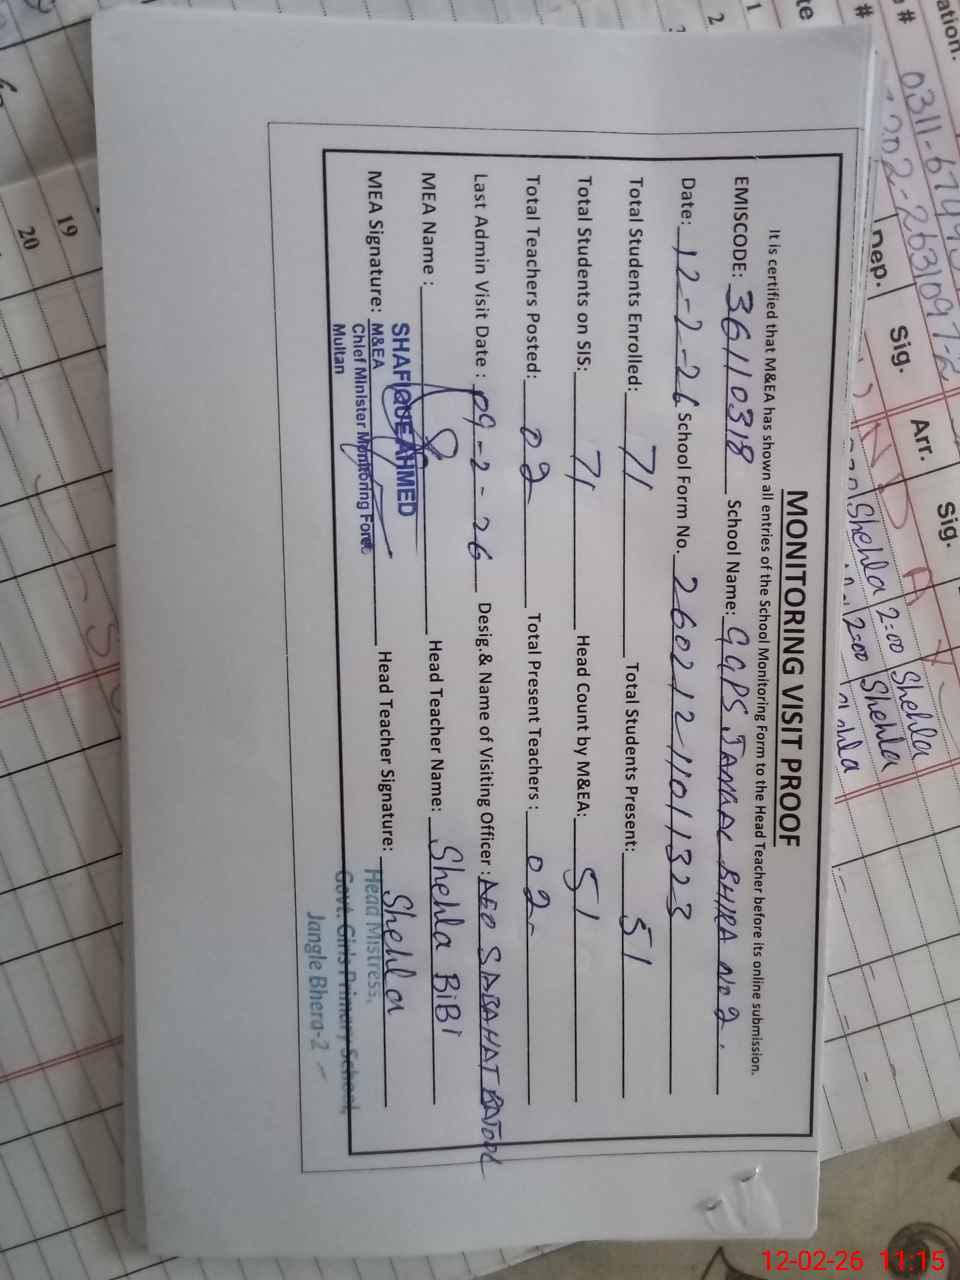 MONITORING VISIT PROOF
It is certified that M&EA has shown all entries of the School Monitoring Form to the Head Teacher before its online submission.
EMISCODE: 36110318 School Name: GGPS JANGAL BHIRA No 2.
Date: 12-2-26 School Form No. 260212-1101323
Total Students Enrolled: 71 Total Students Present: 51
Total Students on SIS: 71 Head Count by M&EA: 51
Total Teachers Posted: 02 Total Present Teachers : 02
Last Admin Visit Date : 09-2-26 Desig.& Name of Visiting Officer : AEO SABAHAT BATOOL
MEA Name : Head Teacher Name: Shehla BiBi
SHAFIQUE AHMED
MEA Signature: M&EA Head Teacher Signature: Shehla
Chief Minister Monitoring Force
Multan
Head Mistress,
Govt. Girls Primary School,
Jangle Bhera-2
ation.
#
0311-
202-2631097-2
Dep.
Sig.
Arr.
Sig.
Shehla 2:00 Shehla
2:00 Shehla
19
20
1
2
12-02-26 11:15